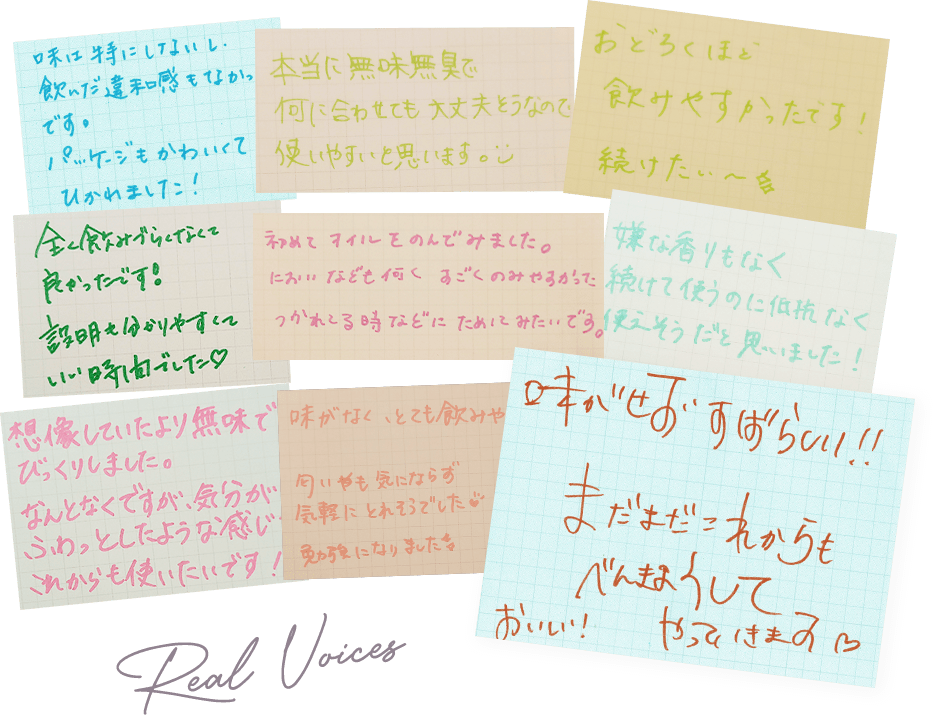 味は特にしないし、
飲んだ違和感もなかっ
です。
パッケージもかわいくて
ひかれました！
本当に無味無臭で
何に合わせても大丈夫そうなので
使いやすいと思います。
おどろくほど
飲みやすかったです！
続けたい〜
全く飲みづらくなくて
良かったです！
説明も分かりやすくて
いい時間でした♡
初めてオイルをのんでみました。
においなども何く すごくのみやすかった
つかれてる時などに ためしてみたいです。
嫌な香りもなく
続けて使うのに抵抗なく
使えそうだと思いました！
想像していたより無味で
びっくりしました。
なんとなくですが、気分が
ふわっとしたような感じ
これからも使いたいです！
味がなく、とても飲みや
匂いやも気にならず
気軽にとれそうでした♡
勉強になりました
味がせず すばらしい!!
まだまだこれからも
べんきょうして
おいしい！ やっていきます♡
Real Voices